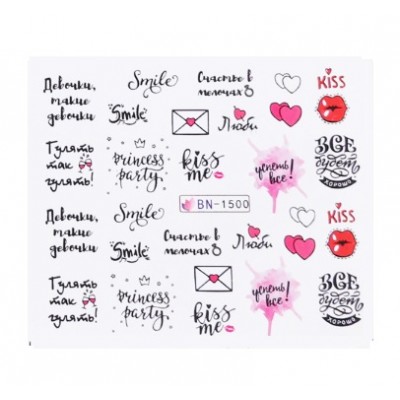 Девочки,
такие
девочки
Smile
Smile
Счастье в
мелочах
Люби
KISS
Гулять
так
гулять!
princess
party
kiss
me
успеть
все!
ВСЕ
будет
ХОРОШО
BN-1500
Девочки,
такие
девочки
Smile
Smile
Счастье в
мелочах
Люби
KISS
Гулять
так
гулять!
princess
party
kiss
me
успеть
все!
ВСЕ
будет
ХОРОШО